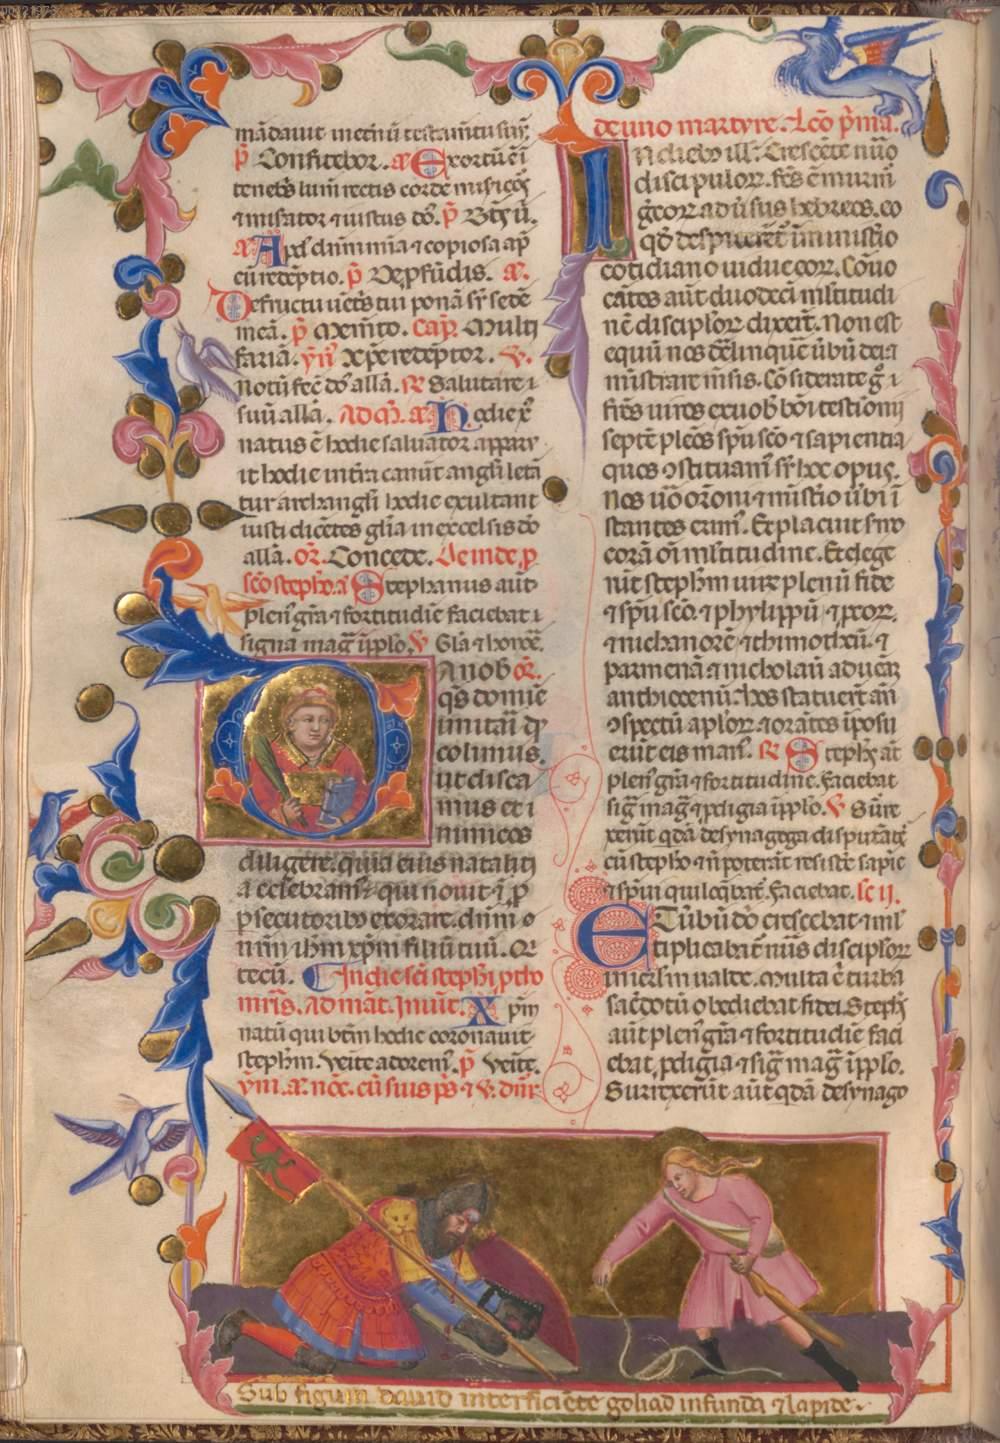 mādauit in eternū testamētu suū;
p̄ Confitebor. æ Exortū ē ī
tenebˀs lumē rectis corde misicoꝝ
⁊ misator ⁊ iustus dō. p̄ Btūs ū.
æ Apd dnm mīa ⁊ copiosa ap̄
eū redēptio. p̄ De pfūdis. æ.
De fructu uētˀs tui ponā sꝑ sedē
meā. p̄ Memēto. Cap̄. Multi
fariā. ym̄ Xp̄e redēptor. v.
Notū fec̄ dō allā. ꝶ Salutare ī
suū allā. Ad m̄. æ. Hodie xp̄
natus ē hodie saluator appar
uit hodie in tr̄a canūt angli letā
tur archangli hodie exultant
iusti dicētes glīa in excelsis dō
allā. or̄. Concede. Deinde ꝓ
scō stephō. ā Stephanus aūt
plenˀ grā ⁊ fortitudīe faciebat
signa mag ī ipplo. v Glā ⁊ honōe.
DA nob or̄.
qˀs domīe
imitari qd
colimus.
ut disca
mus et ī
nimicos
diligere. quia eius natalitī
a celebramˀ qui nouit ī ꝓ
psecutoribˀ exorare. dnm̄ o
nrm ihm xpm filiū tuū. Q
tecū. In die scī stephī ptho
mrīs. Ad māt. Inuit. Xpm
natū qui btm hodie coronauit
stephm. Venite adorem̄. p̄ Venite.
ym̄. æ. noc̄. cū suis pˀs ⁊ v. dnr̄
de uno martyre. Lcō p̄ma.
In diebˀ ill. Crescēte nūo
discipuloꝝ. fcs ē murm̄
grecoꝝ aduˀsus hebreos. eo
qd despicerēt ī ministio
cotidiano uidue eoꝝ. Conuo
cātes aūt duodecī multitudi
nē disciploꝝ dixert. Non est
equū nos delinquē ūbū dei ⁊
ministrare mīsis. Cōsiderate gˀ
frēs uiros ex uob bōi testionij
septē plēos spū scō ⁊ sapientia
quos ꝯstituamˀ sꝑ hoc opus.
Nos uō orōni ⁊ mīstio ūbi ī
stantes erim̄. Et placuit smo
corā oī multitudine. Et elege
rūt stephm uirū plenū fide
⁊ spū scō. ⁊ phylippū ⁊ pcoꝝ.
⁊ nichanorē ⁊ thimothcū. ⁊
parmenā ⁊ nicholaū aduenā
anthiocenū. Hos statuert an̄
ꝯspectū aploꝝ ⁊ orātes īposu
erūt eis manˀ. ꝶ Stephˀ at
plenˀ grā ⁊ fortitudine. faciebat
sigˀ mag ⁊ pdigia ī pplo. v Surre
xerūt qdā de synagoga disputātes
cū stepho ⁊ n poterāt resistē sapie
⁊ spūi qui loqbat. Faciebat. lc ij.
Et ūbū dō crescebat ⁊ ml
tiplicabat nūs disciploꝝ
in erlm ualde. multa ē turba
sacdotū obediebat fidei. Stephˀ
aūt plenˀ grā ⁊ fortitudīe faci
ebat pdigia ⁊ sig mag ī pplo.
Surrexerūt aūt qdā de synago
Sub figura dauid interficiēte goliad in funda ⁊ lapide.